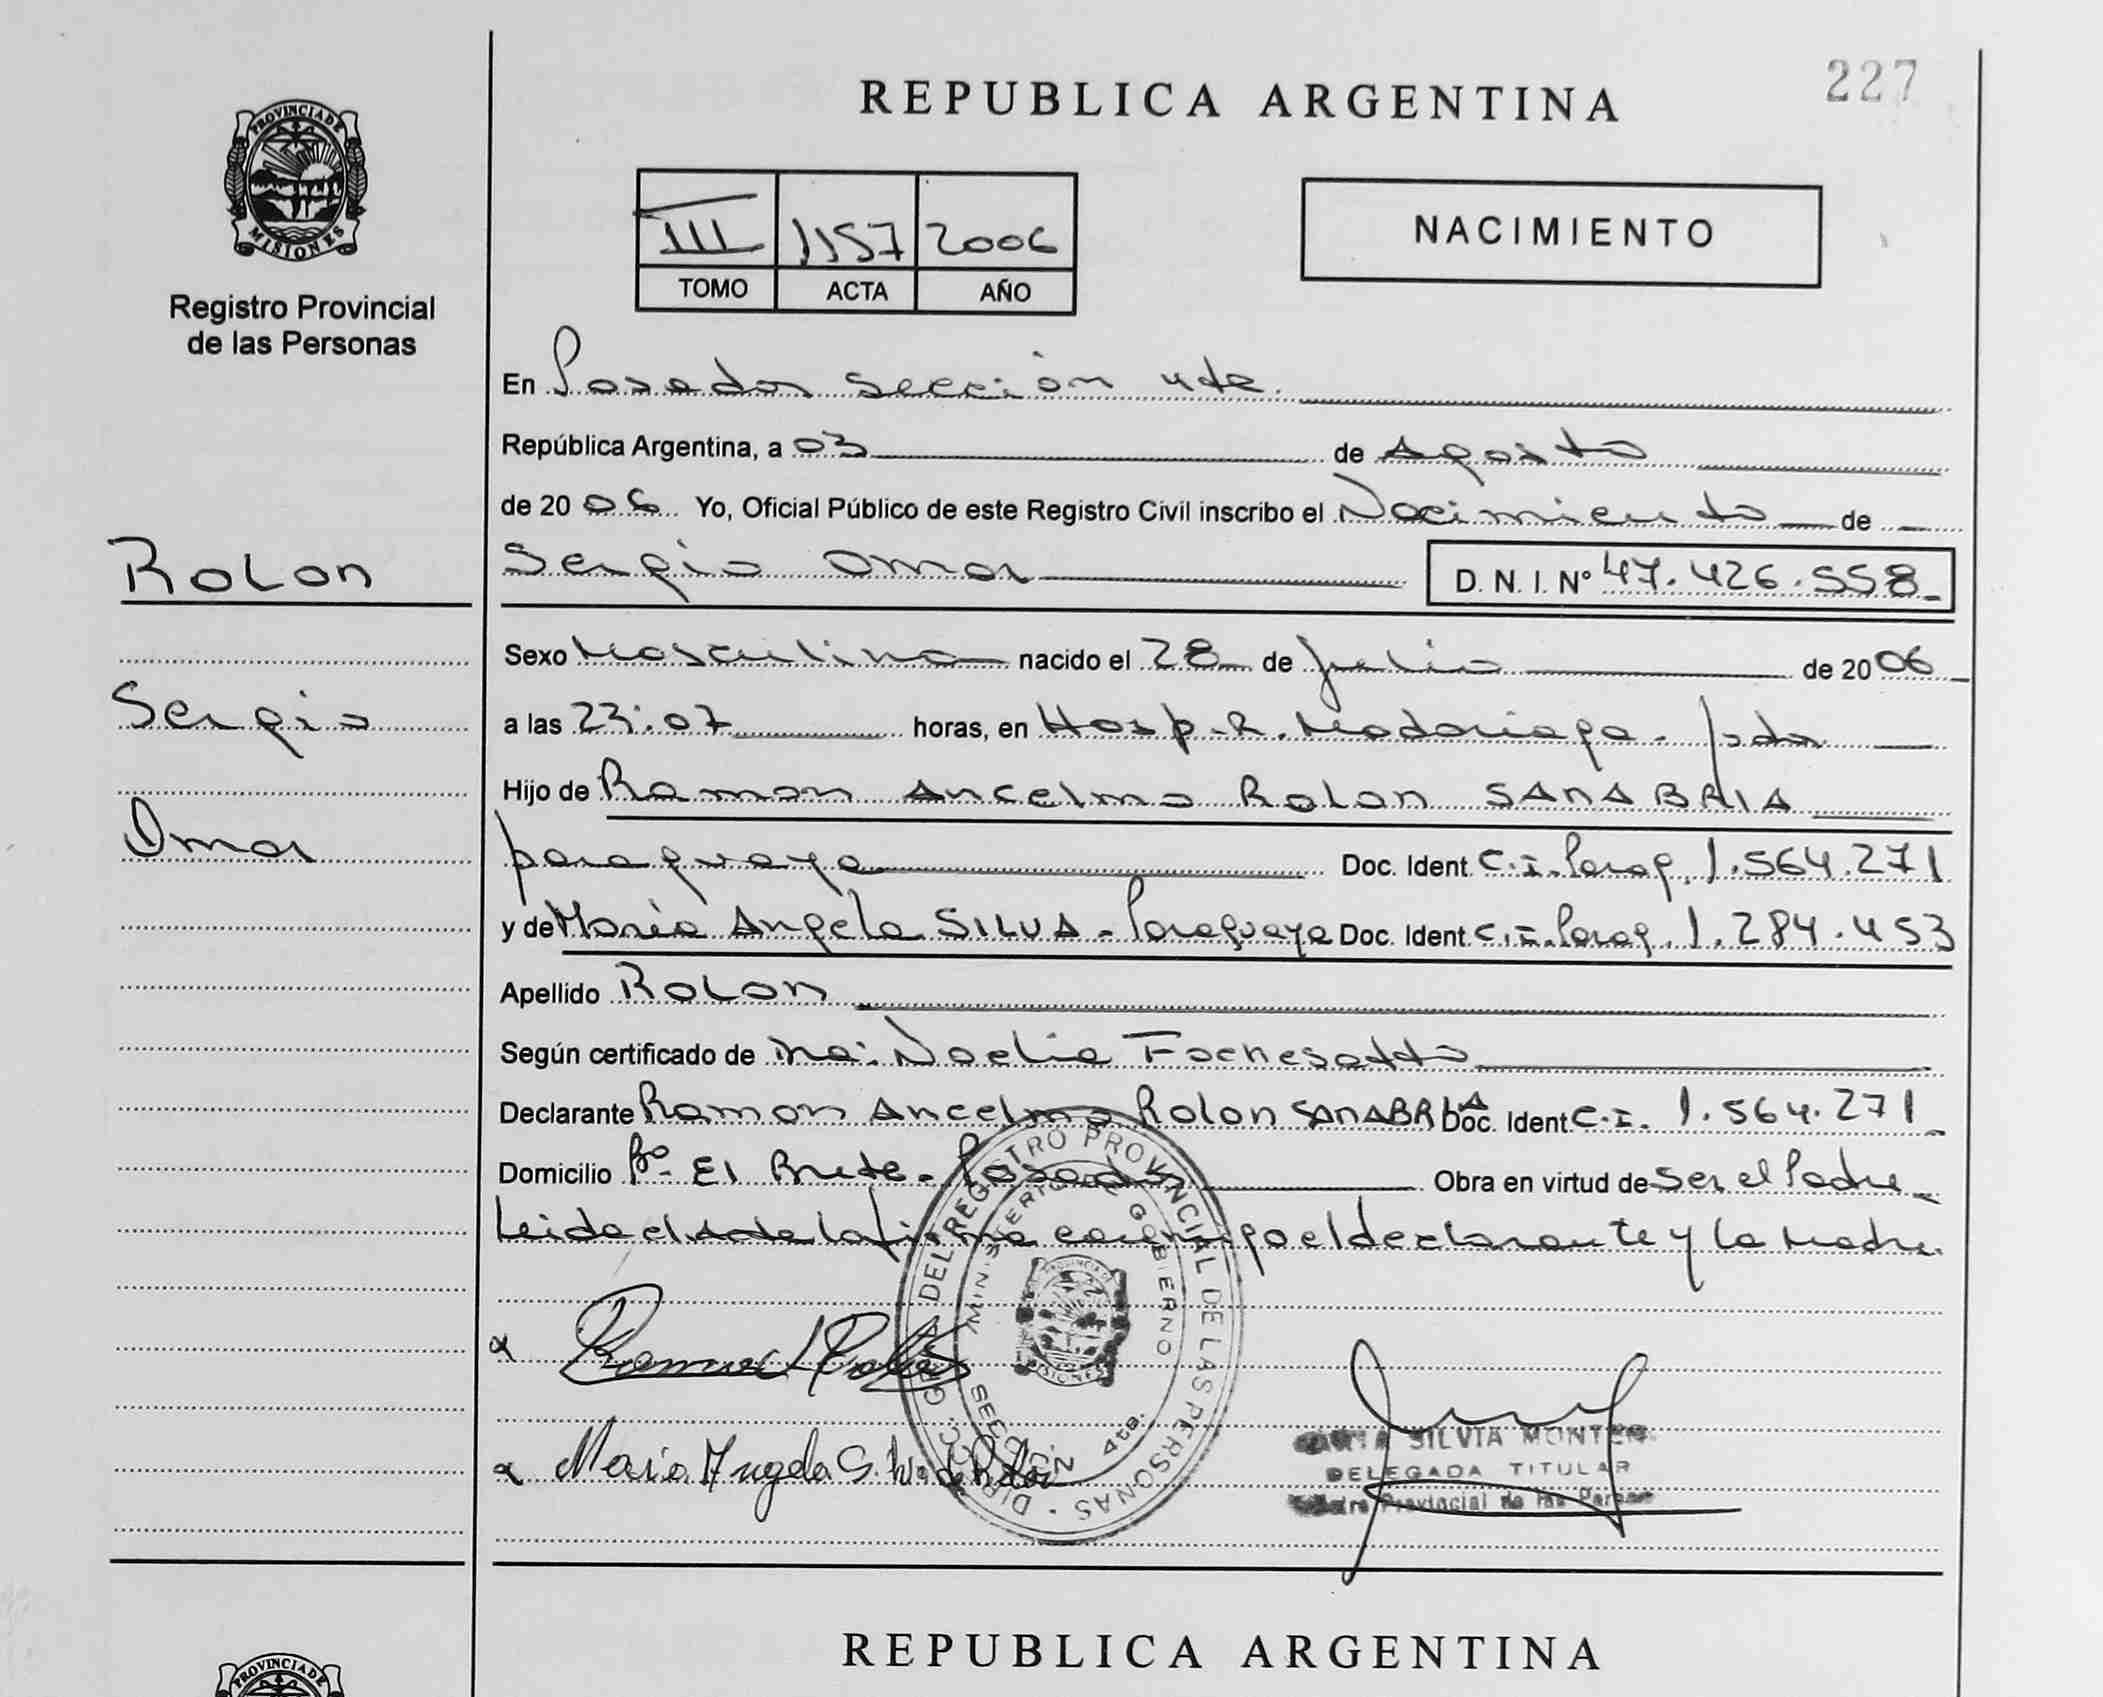 227
REPUBLICA ARGENTINA
PROVINCIA DE
MISIONES
Registro Provincial
de las Personas
III 1157 2006
TOMO ACTA AÑO
NACIMIENTO
En Posadas sección 4ta.
República Argentina, a 03 de Agosto
de 2006 Yo, Oficial Público de este Registro Civil inscribo el Nacimiento de
Rolon
Sergio Omar D. N. I. Nº 47.426.558
Sexo Masculino nacido el 28 de Julio de 2006
Sergio
a las 23:07 horas, en Hosp. R. Madariaga. Pdas
Hijo de Ramon Ancelmo Rolon SANABRIA
Omar
paraguaya Doc. Ident. C.I. Parag. 1.564.271
y de Maria Angela SILVA - Paraguaya Doc. Ident. C.I. Parag. 1.284.453
Apellido Rolon
Según certificado de Noelia
Declarante Ramon Ancelmo Rolon SANABRIA Doc. Ident C.I. 1.564.271
Domicilio Bº. El Brete - Posadas Obra en virtud de ser el Padre
Leida el Acta la firma conmigo el declarante y la Madre
DIRECC. GRAL. DEL REGISTRO PROVINCIAL DE LAS PERSONAS
MINISTERIO DE GOBIERNO
SECCION 4ta.
PROVINCIA DE
MISIONES
Maria Angela S.
SILVIA
DELEGADA TITULAR
Provincial de las
REPUBLICA ARGENTINA
PROVINCIA DE